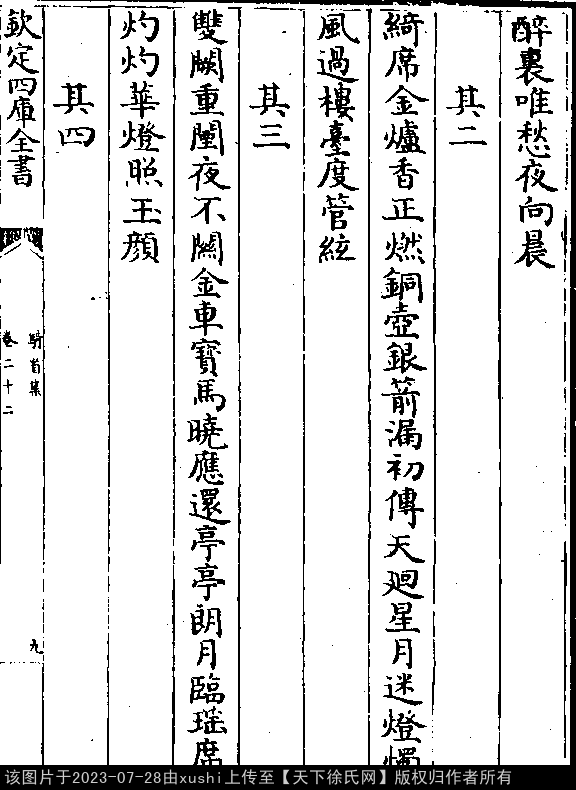 醉裏唯愁夜向晨
其二
綺席金爐香正燃銅壺銀箭漏初傳天迥星月迷燈燭
風過樓臺度管絃
其三
雙闕重闉夜不關金車寳馬曉應還亭亭朗月臨瑶席
灼灼華燈照玉顔
其四
欽定四庫全書
卷二十二
九
该图片于2023-07-28由xushi上传至【天下徐氏网】版权归作者所有